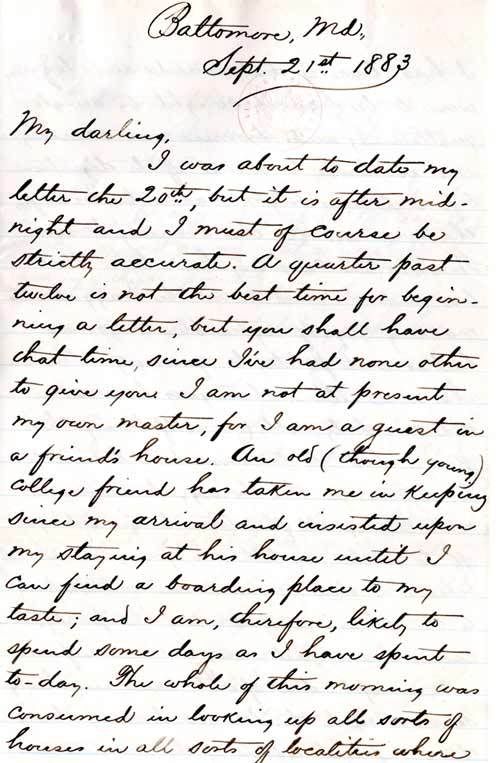 Baltomore, Md.,
Sept. 21st 1883
My darling,
I was about to date my
letter the 20th, but it is after mid-
night and I must of course be
strictly accurate. A quarter past
twelve is not the best time for begin-
ning a letter, but you shall have
that time, since I've had none other
to give you. I am not at present
my own master, for I am a guest in
a friend's house. An old (though young)
college friend has taken me in keeping
since my arrival and insisted upon
my staying at his house until I
can find a boarding place to my
taste; and I am, therefore, likely to
spend some days as I have spent
to-day. The whole of this morning was
consumed in looking up all sorts of
houses in all sorts of localities where